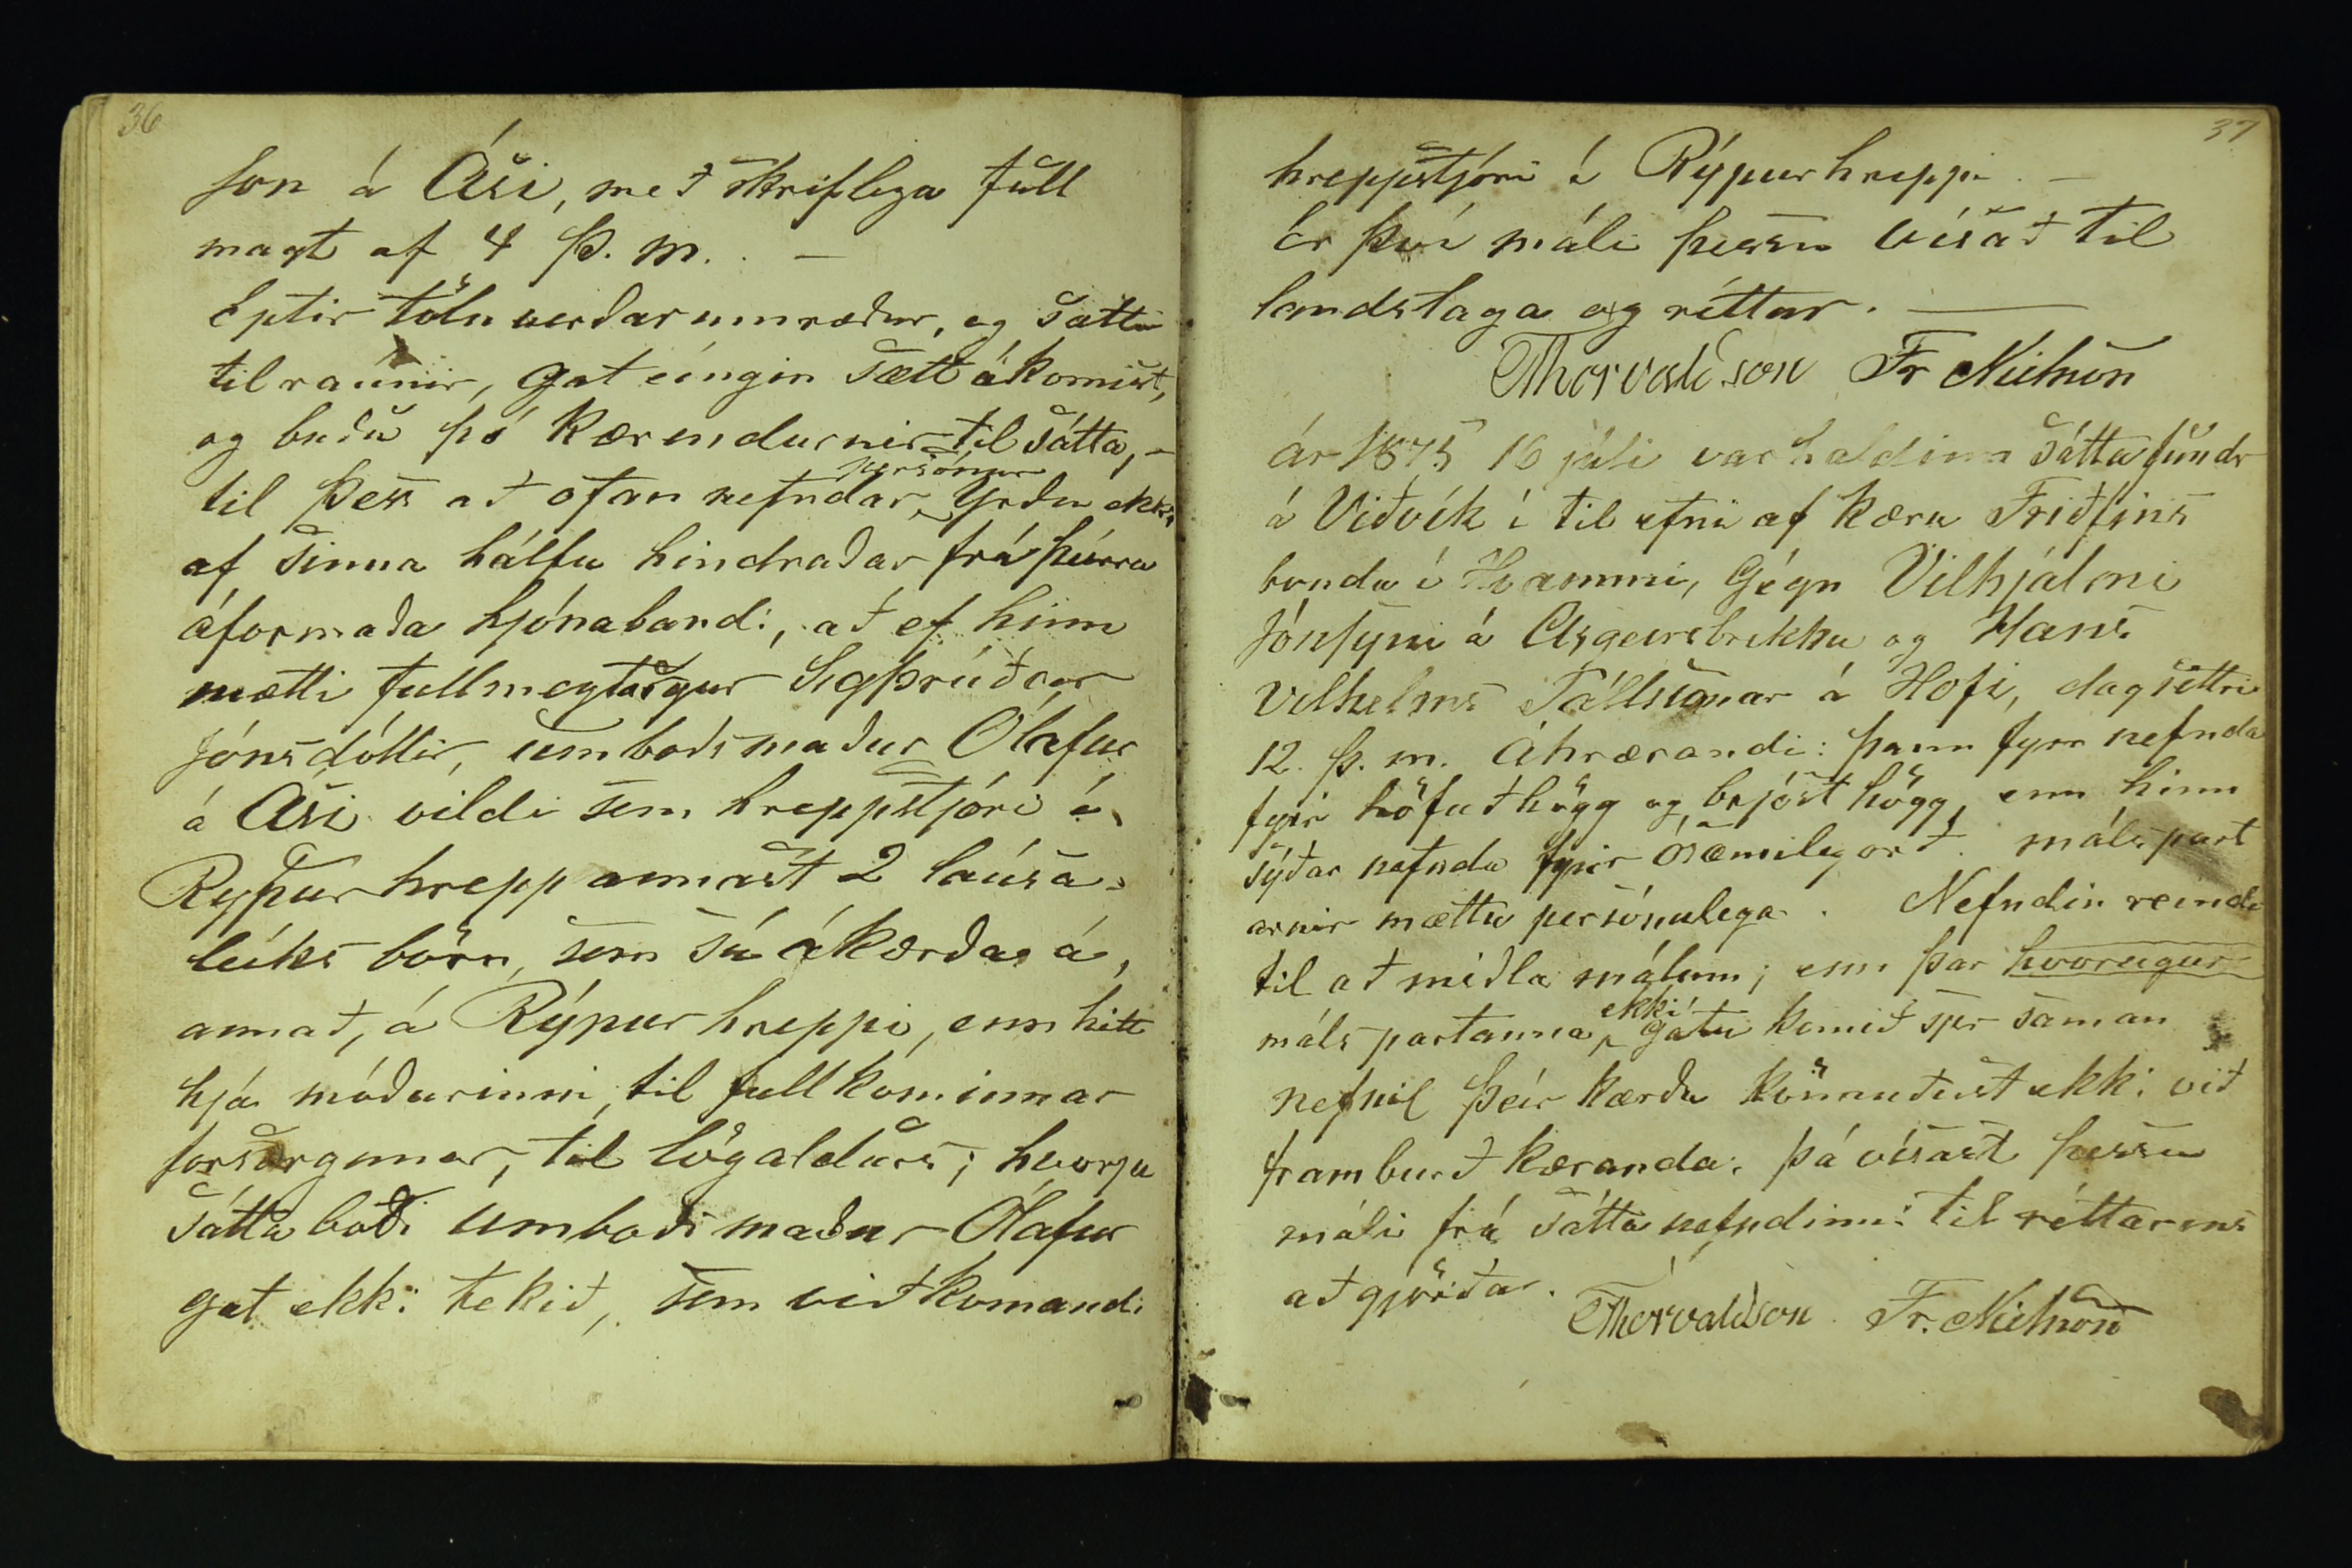 36
son á Ási, með skriflega full
magt af 4 Þ. m. . —
Eptir töluverðar umræður, og sátta
tilraúnir, gat eíngin sætt ákomist,
og buðu þó kærendurnir til sátta, –
til þess að ofan nefndar persónur yrðu ekki
af sinna hálfu hindraðar frá þeírra
áformaða hjónabandi, að ef hinn
mætti fullmegtögur Sigþrúðar
Jónsdóttir, umboðsmaður Ólafur
á Ási vildi sem hreppstjóri í
Rýpurhrepp annast 2 laúsa-
leíks börn, sem sú ákærða á,
annað, á Rýpurhreppi, enn hitt
hjá móðurinni, til fullkominnar
forsorgunar, til lögaldurs; hvorju
sáttaboði umboðsmaður Ólafur
gat ekki tekið, sem viðkomandi
37
hreppstjóri í Rýpurhreppi. —
Er því máli þessu vísað til
landslaga og réttar. —
Thorvaldson Fr Nielson
ár 1875 16 júli var haldinn sáttafundr
á Viðvík í tilefni af kæru Friðfins
bonda í Hvammi, Gégn Vilhjálmi
Jónssyni á Asgeirsbrekku og Hans
Vilhelms Pállssonar á Hofi, dagsettri
12. Þ. m. áhrærandi: þann fyrr nefnda
fyrir höfuðhögg og brjósthögg, enn hinn
sýðar nefnda fyrir ósæmileg orð. málspart
arnir mættu persónulega. Nefndin reindi
til að miðla málum; enn þar hvorugur
málspartanna ekki gátu komið sjer saman
nefnil þeír kærðu könnuðust ekki við
framburð kæranda. þá vísast þessu
máli frá sáttanefndinni til réttarins
aðgjörða.
Thorvaldson Fr. Nielson